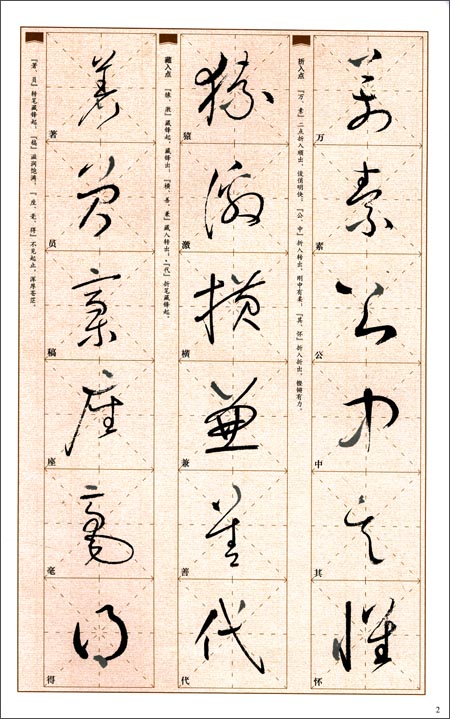 万
素
公
中
其
怀
折入点 「万、素」二点折入顺出，俊俏明快。「公、中」折入转出，刚中有柔。「其、怀」折入折出，有力。
猿
激
横
兼
善
代
藏入点 「猿、激」藏锋起，藏锋出。「横、善、兼」藏入转出，「代」折笔藏锋起。
著
员
稿
座
毫
得
「著、员」转笔藏锋起，「稿」滋润饱满，「座、毫、得」不见起止，浑厚苍茫。
2